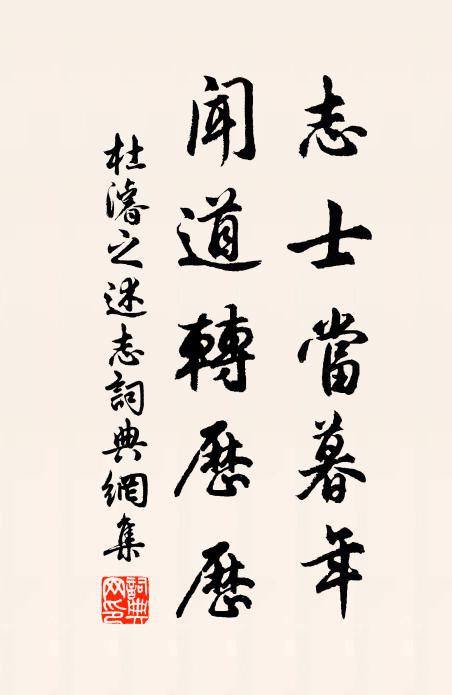 志士當暮年
聞道轉歷歷
杜濬之述志詞典網集
詞典網印